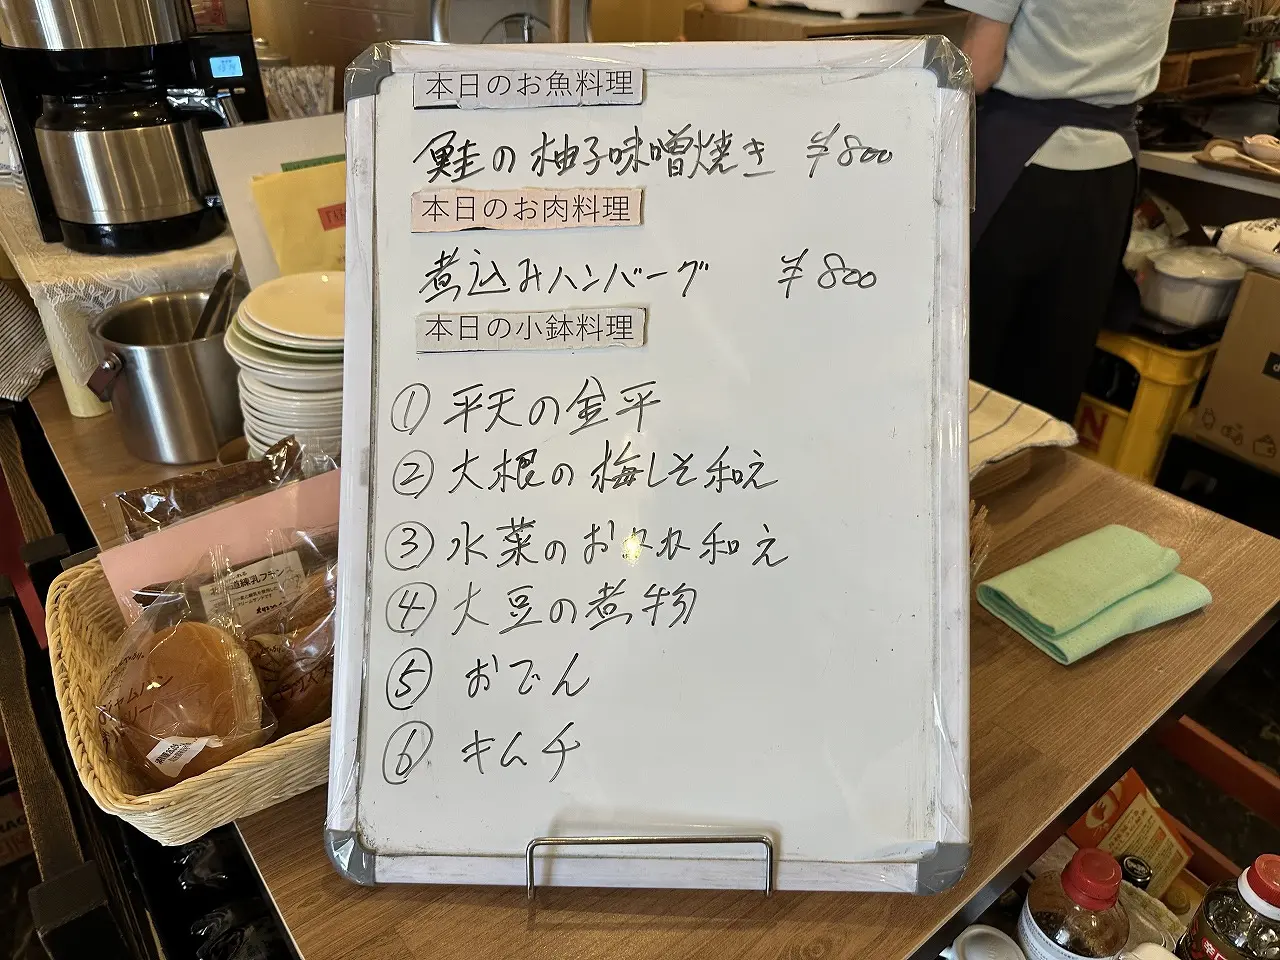 本日のお魚料理
鮭の柚子味噌焼き ¥800
本日のお肉料理
煮込みハンバーグ ¥800
本日の小鉢料理
① 平天の金平
② 大根の梅しそ和え
③ 水菜のおかか和え
④ 大豆の煮物
⑤ おでん
⑥ キムチ